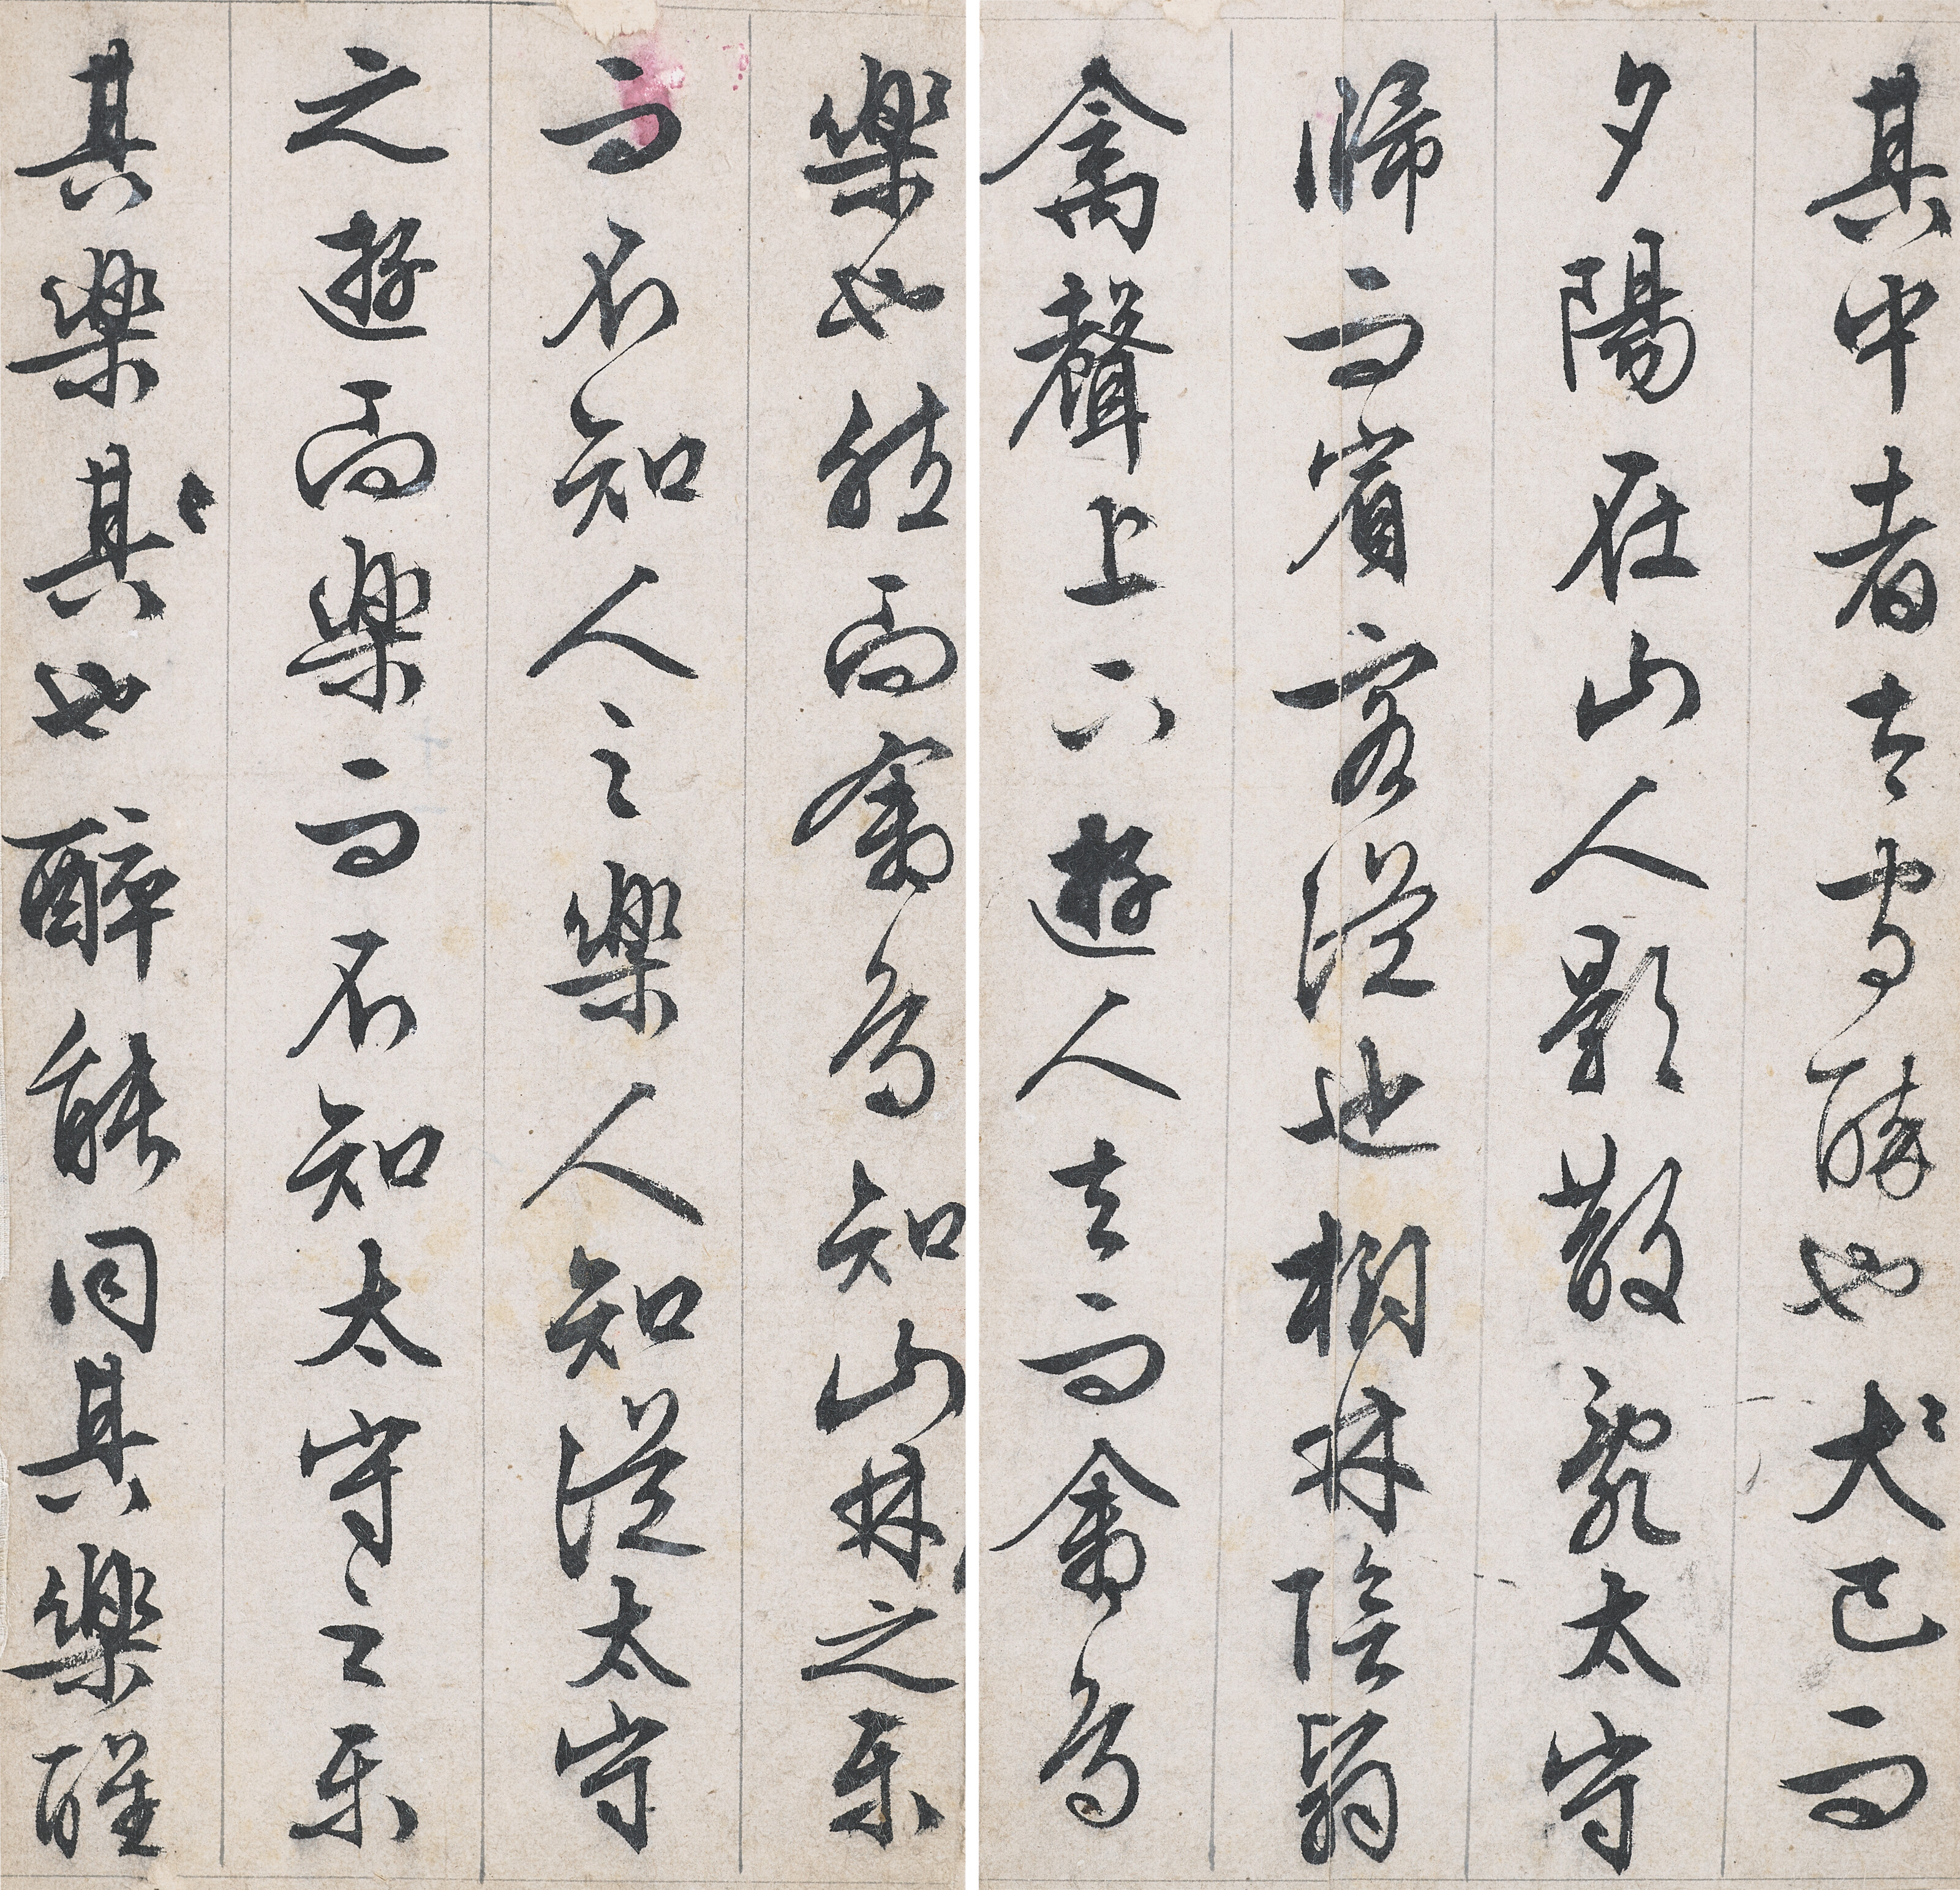 其中者太守醉也犬已而
夕陽在山人影散亂太守
歸而賓客從也樹林陰翳
禽聲上下遊人去而禽鳥
樂也然而禽鳥知山林之樂
而不知人之樂人知從太守
之遊而樂而不知太守之樂
其樂其也醉能同其樂醒